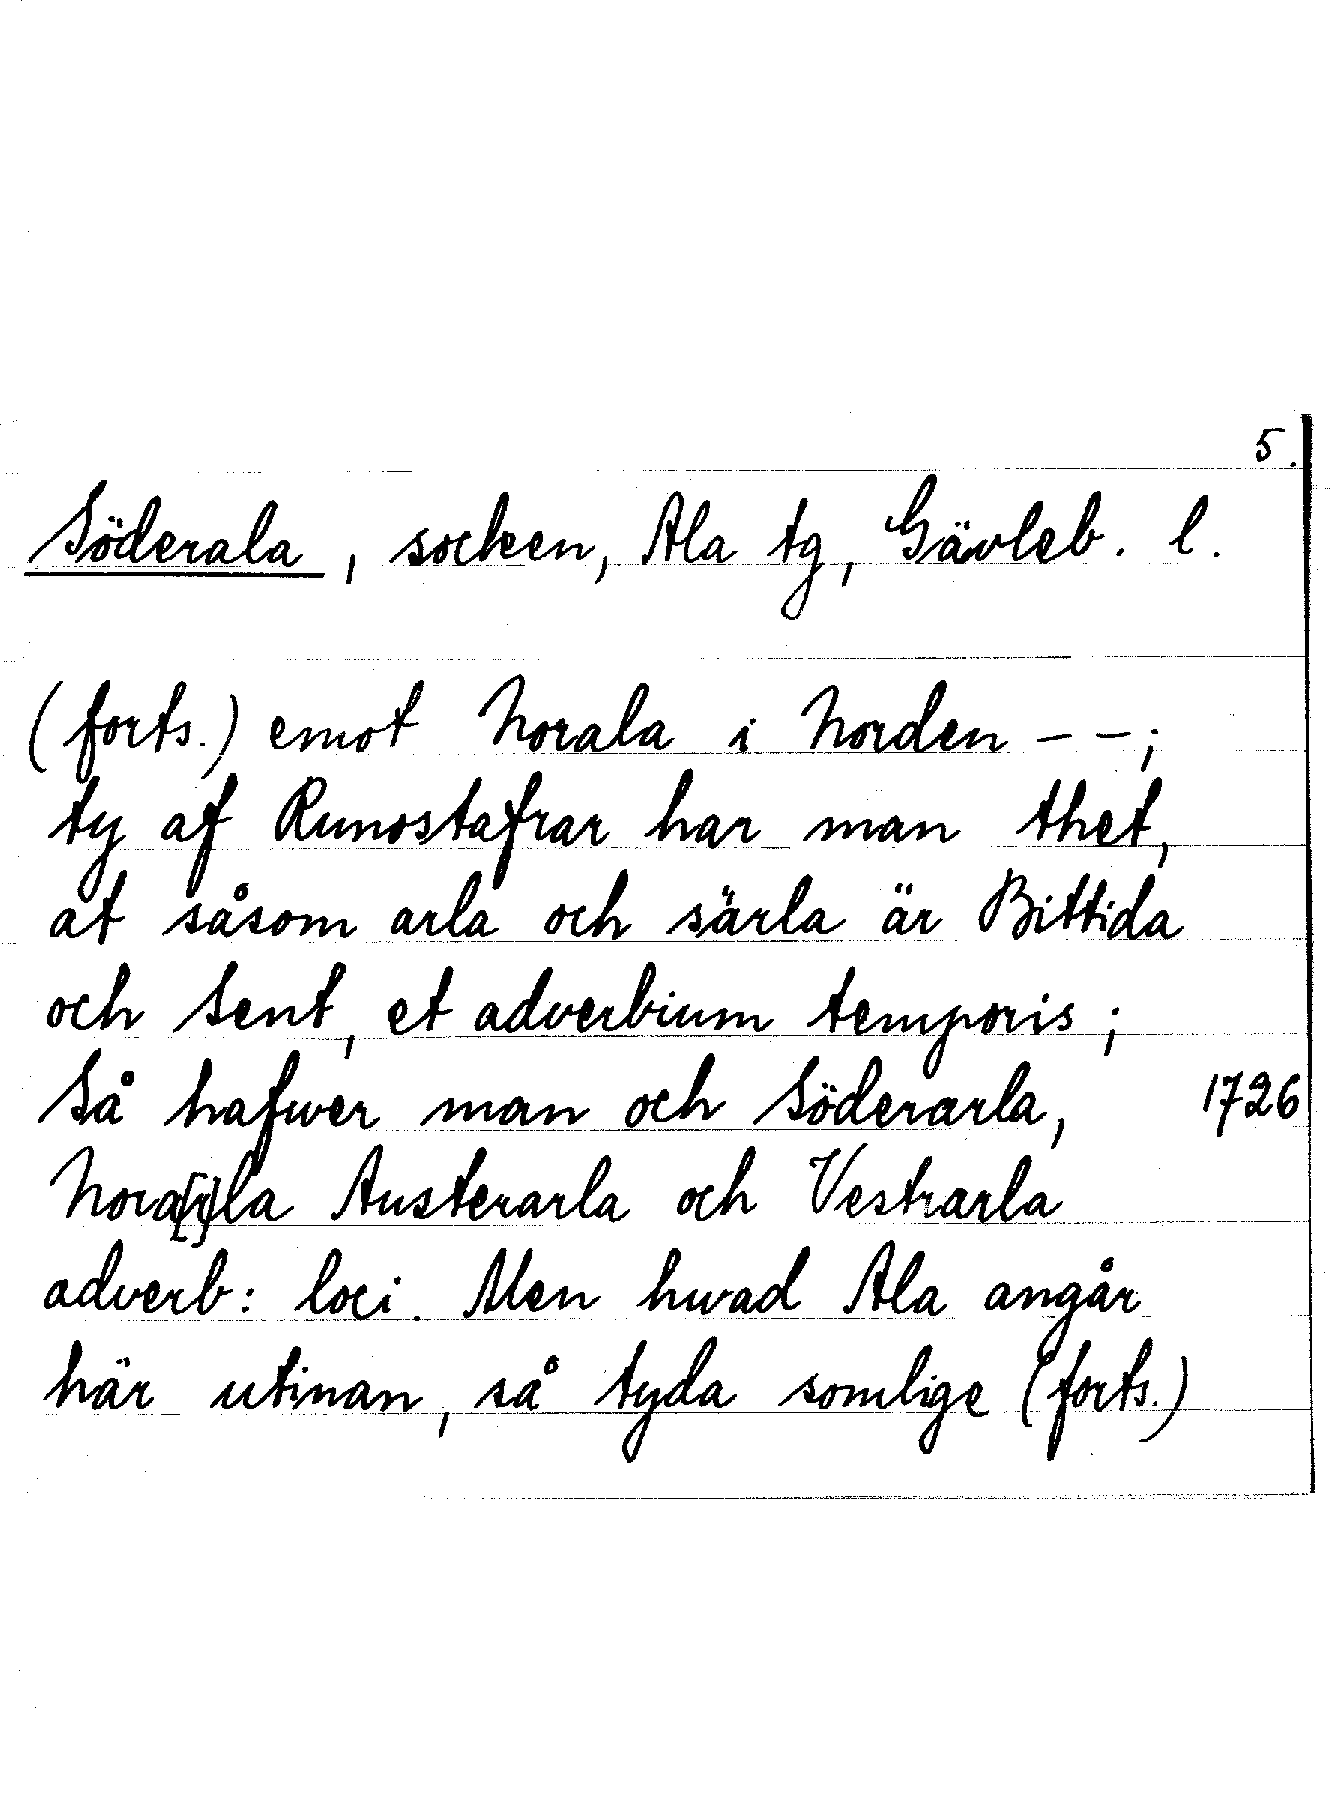 5.
Söderala, socken, Ala tg, Gävleb. l.
(forts.) emot Norala i Norden – – ;
ty af Runostafrar har man thet,
at såsom arla och särla är Bittida
och Sent, et adverbium temporis ;
Så hafwer man och Söderarla, 1726
Nora[r]la Austerarla och Vestrarla
adverb: loci. Men hwad Ala angår
här utinan, så tyda somlige (forts.)